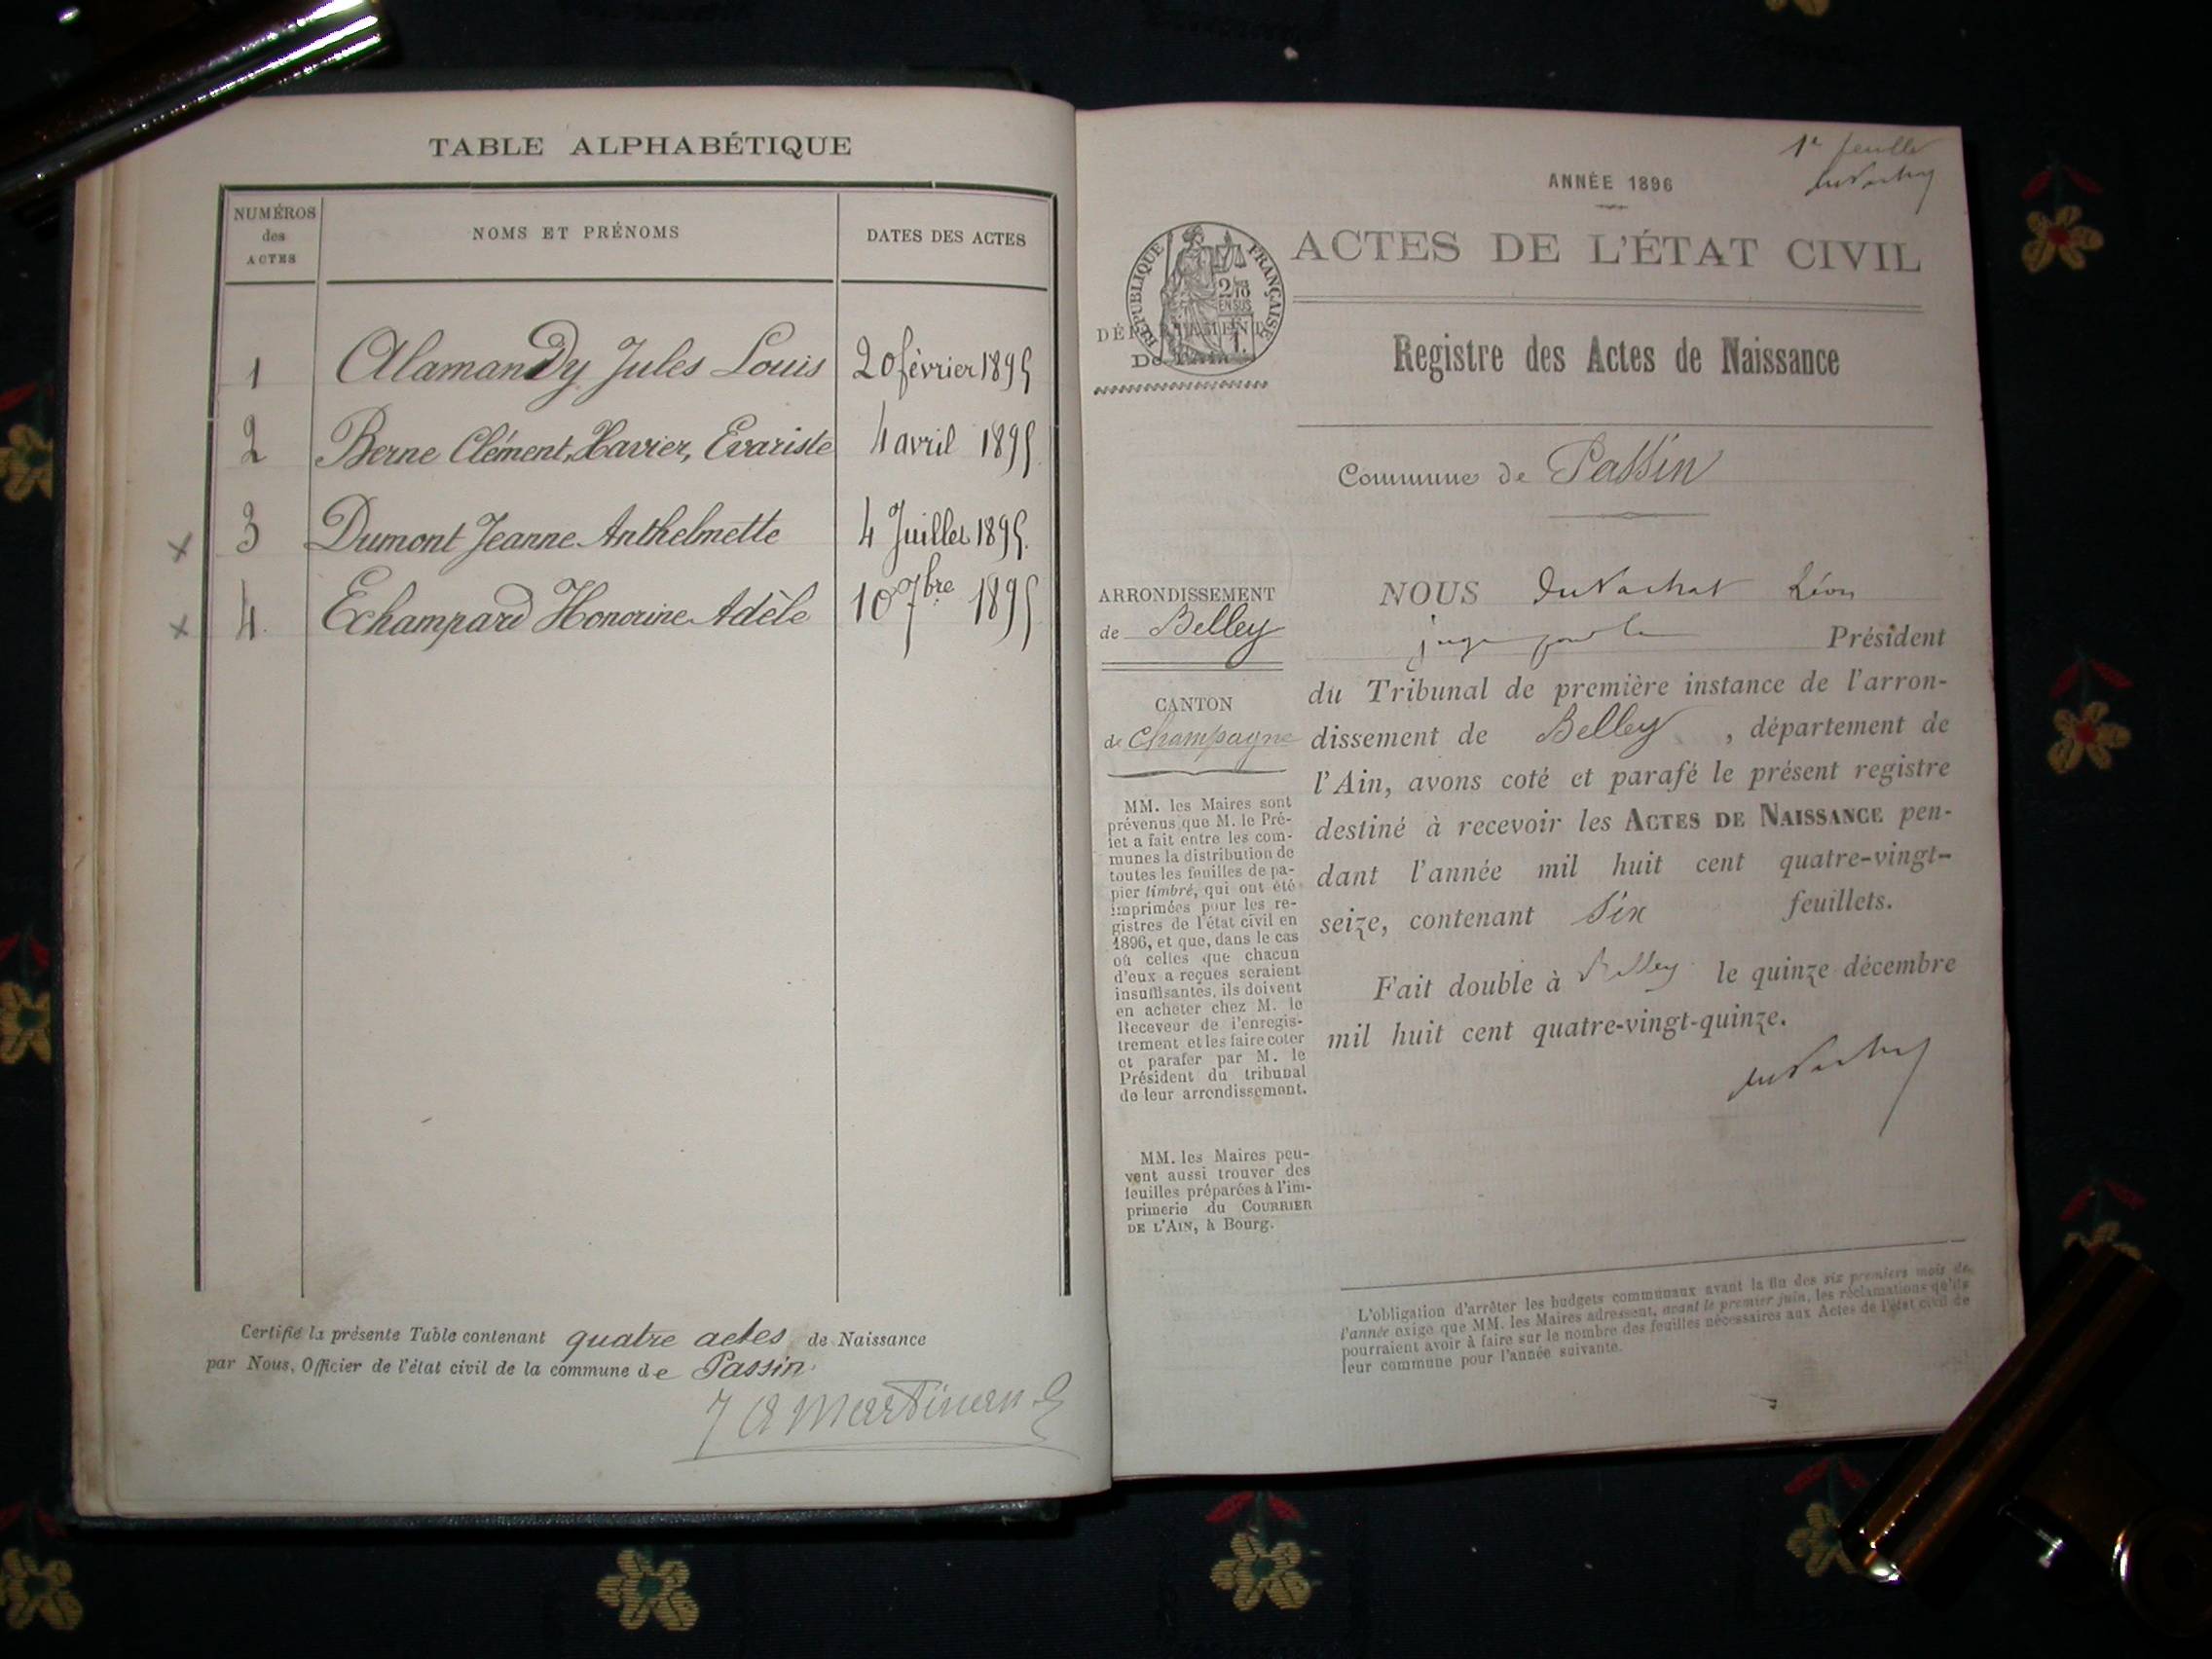 TABLE ALPHABÉTIQUE
NUMÉROS
des
ACTES
NOMS ET PRÉNOMS
DATES DES ACTES
1 Alamandy Jules Louis 20 février 1895
2 Berne Clément, Xavier, Evariste 4 avril 1895
x 3 Dumont Jeanne Anthelmette 4 Juillet 1895.
x 4. Echampard Honorine Adèle 10 7bre 1895
Certifié la présente Table contenant quatre actes de Naissance
par Nous, Officier de l'état civil de la commune de Passin.
Martinand
1e feuille
duVachat
ANNÉE 1896
ACTES DE L'ÉTAT CIVIL
RÉPUBLIQUE FRANÇAISE
2/10
EN SUS
DÉPARTEMENT
De l'Ain
Registre des Actes de Naissance
Commune de Passin
ARRONDISSEMENT
de Belley
CANTON
de Champagne
MM. les Maires sont
prévenus que M. le Pré-
fet a fait entre les com-
munes la distribution de
toutes les feuilles de pa-
pier timbré, qui ont été
imprimées pour les re-
gistres de l'état civil en
1896, et que, dans le cas
où celles que chacun
d'eux a reçues seraient
insuffisantes, ils doivent
en acheter chez M. le
Receveur de l'enregis-
trement et les faire coter
et parafer par M. le
Président du tribunal
de leur arrondissement.
MM. les Maires peu-
vent aussi trouver des
feuilles préparées à l'im-
primerie du COURRIER
DE L'AIN, à Bourg.
NOUS duVachat Léon
juge pour le Président
du Tribunal de première instance de l'arron-
dissement de Belley, département de
l'Ain, avons coté et parafé le présent registre
destiné à recevoir les ACTES DE NAISSANCE pen-
dant l'année mil huit cent quatre-vingt-
seize, contenant Six feuillets.
Fait double à Belley le quinze décembre
mil huit cent quatre-vingt-quinze.
duVachat
L'obligation d'arrêter les budgets communaux avant la fin des six premiers mois de
l'année exige que MM. les Maires adressent, avant le premier juin, les réclamations qu'ils
pourraient avoir à faire sur le nombre des feuilles nécessaires aux Actes de l'état civil de
leur commune pour l'année suivante.